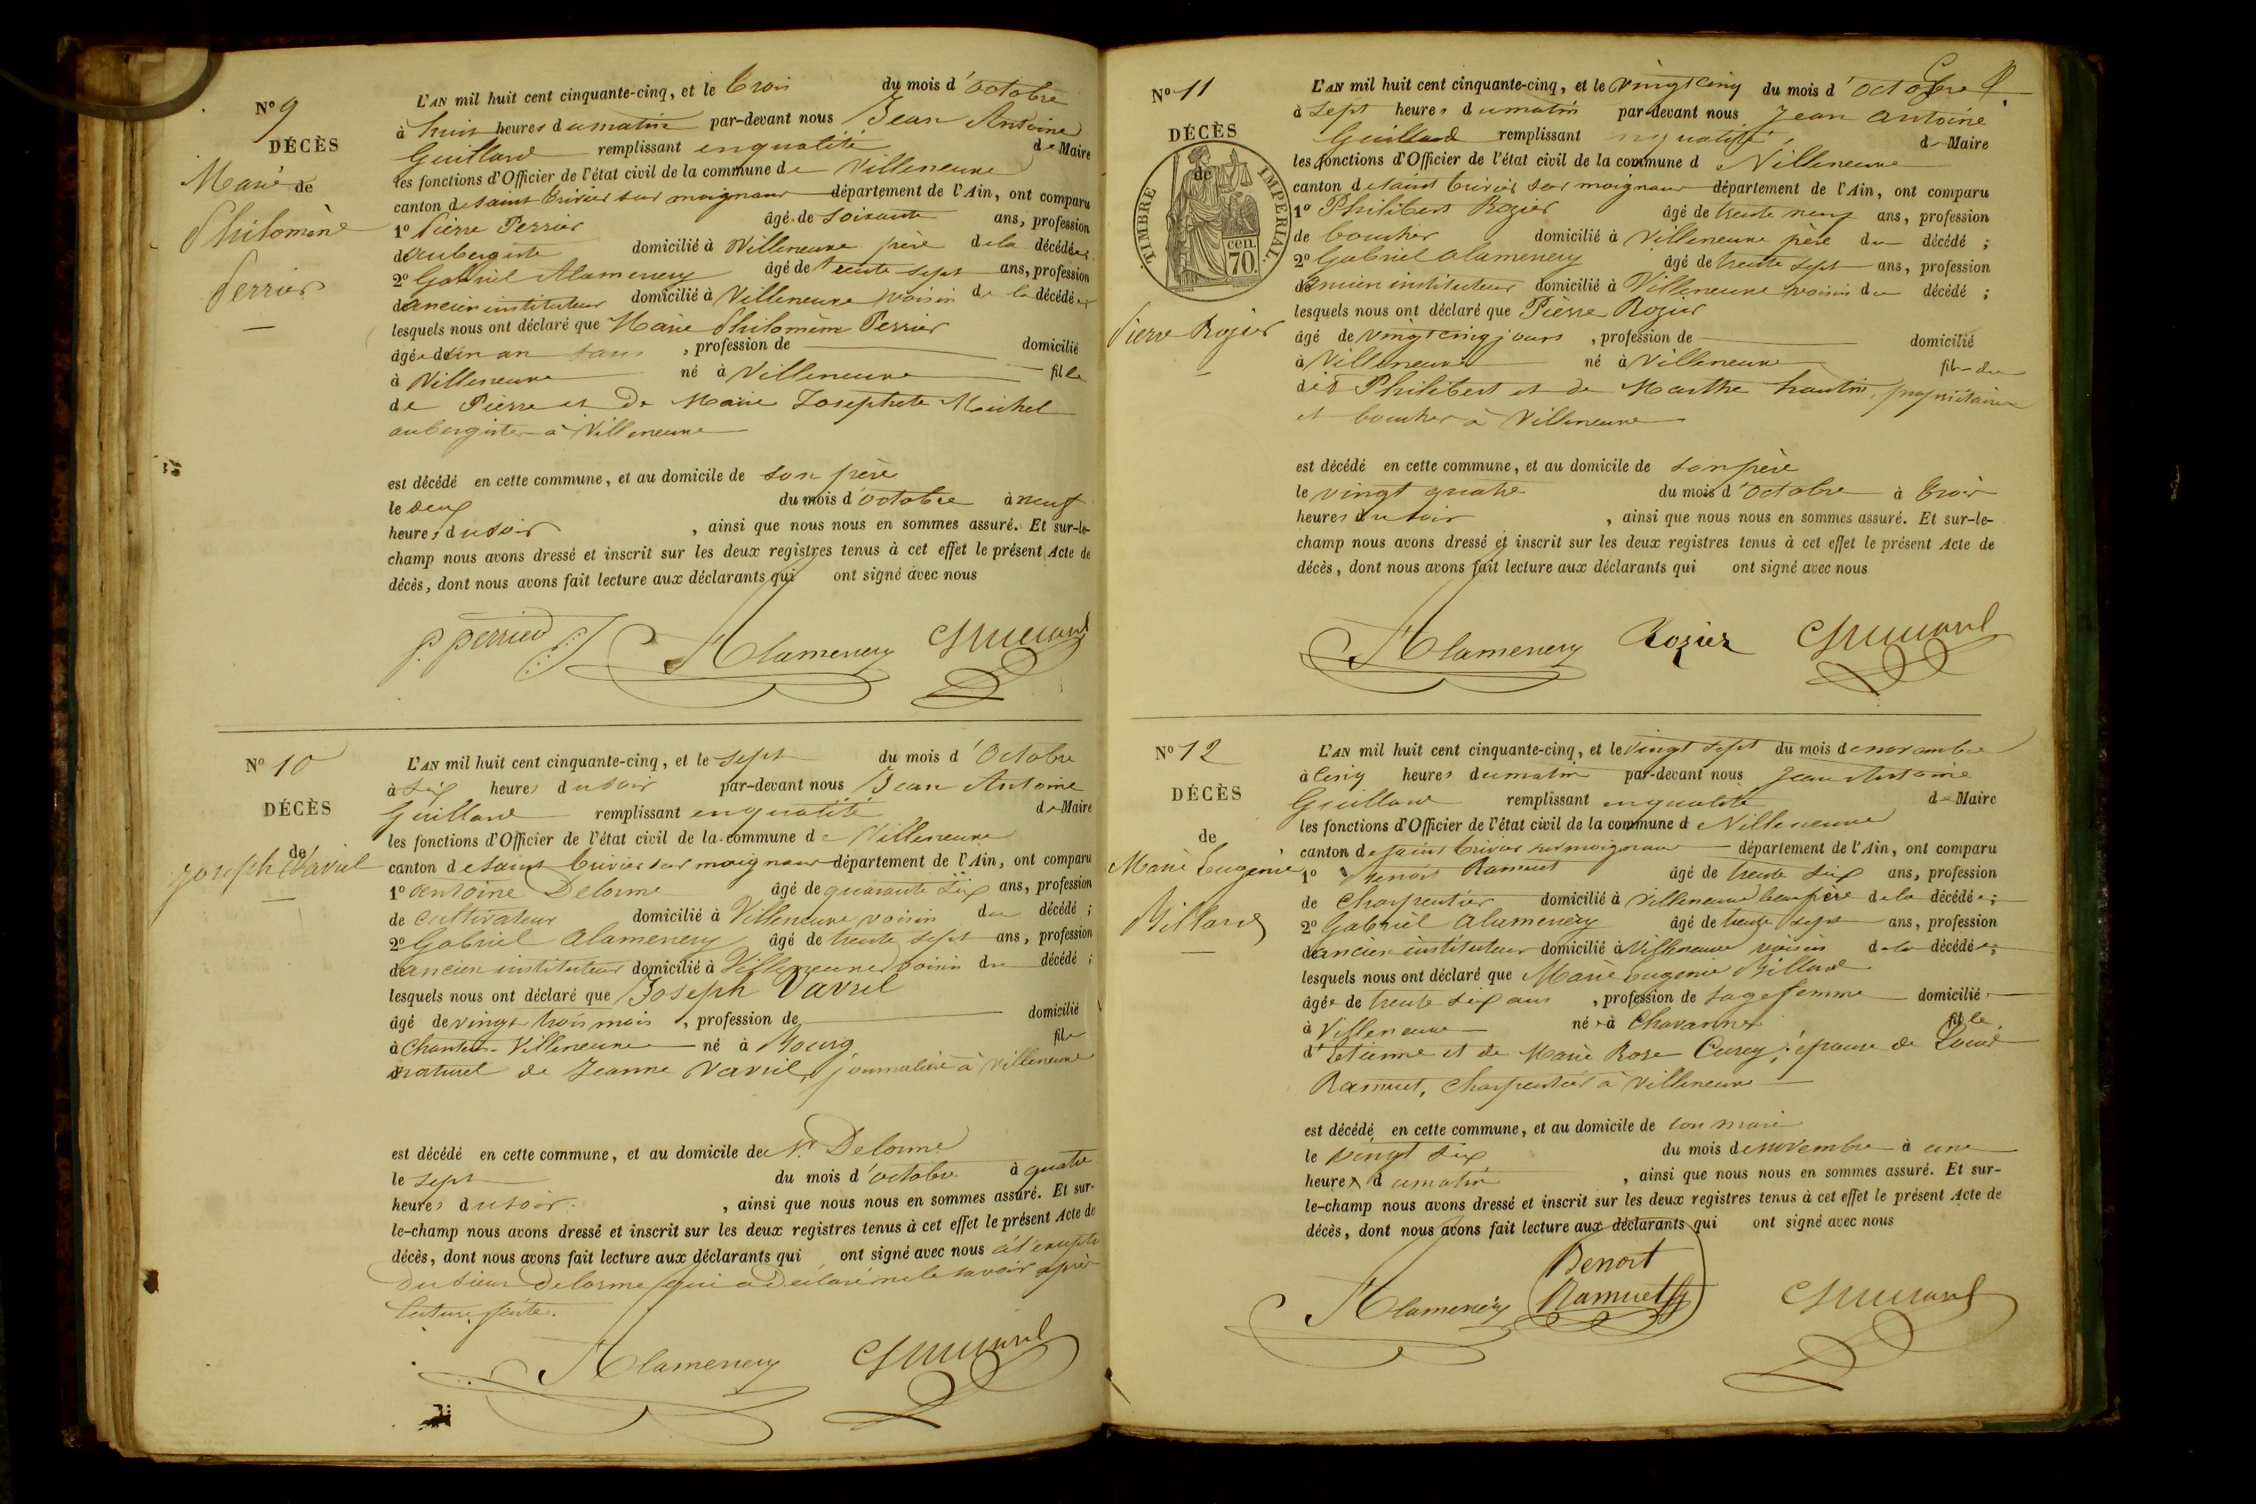 N° 9
DÉCÈS
Marie de
Philomène
Perrier
L'AN mil huit cent cinquante-cinq, et le trois du mois d'octobre
à huit heures du matin par-devant nous Jean Antoine
Guillard remplissant en qualité de Maire
les fonctions d'Officier de l'état civil de la commune de Villeneuve
canton de saint trivier sur moignans département de l'Ain, ont comparu
1° Pierre Perrier âgé de soixante ans, profession
d'aubergiste domicilié à Villeneuve père de la décédée;
2° Gabriel Alamenery âgé de trente sept ans, profession
d'ancien instituteur domicilié à Villeneuve voisin de la décédée;
lesquels nous ont déclaré que Marie Philomène Perrier
âgée d'un an , profession de domicilié
à Villeneuve né à Villeneuve fille
de Pierre et de Marie Josephete Michel
aubergiste à Villeneuve
est décédé en cette commune, et au domicile de son père
le deux du mois d'octobre à neuf
heures du soir , ainsi que nous nous en sommes assuré. Et sur-le-
champ nous avons dressé et inscrit sur les deux registres tenus à cet effet le présent Acte de
décès, dont nous avons fait lecture aux déclarants qui ont signé avec nous
P. Perrier Alamenery Guillard
N° 10
DÉCÈS
de
Joseph Vavril
L'AN mil huit cent cinquante-cinq, et le sept du mois d'Octobre
à six heures du soir par-devant nous Jean Antoine
Guillard remplissant en qualité de Maire
les fonctions d'Officier de l'état civil de la commune de Villeneuve
canton de saint trivier sur moignans département de l'Ain, ont comparu
1° Antoine Delorme âgé de quarante six ans, profession
de cultivateur domicilié à Villeneuve voisin du décédé;
2° Gabriel Alamenery âgé de trente sept ans, profession
d'ancien instituteur domicilié à Villeneuve voisin du décédé;
lesquels nous ont déclaré que Joseph Vavril
âgé de vingt trois mois , profession de domicilié
à Villeneuve né à Bourg fils
naturel de Jeanne Vavril, journalière à Villeneuve
est décédé en cette commune, et au domicile de Delorme
le sept du mois d'octobre à quatre
heures du soir , ainsi que nous nous en sommes assuré. Et sur-
le-champ nous avons dressé et inscrit sur les deux registres tenus à cet effet le présent Acte de
décès, dont nous avons fait lecture aux déclarants qui ont signé avec nous
du sieur Delorme qui a déclaré ne le savoir après
lecture faite.
Alamenery Guillard
N° 11
DÉCÈS
de
TIMBRE IMPERIAL.
70 cen.
Pierre Rozier
L'AN mil huit cent cinquante-cinq, et le vingt cinq du mois d'octobre
à sept heures du matin par-devant nous Jean Antoine
Guillard remplissant en qualité de Maire
les fonctions d'Officier de l'état civil de la commune de Villeneuve
canton de saint trivier sur moignans département de l'Ain, ont comparu
1° Philibert Rozier âgé de trente neuf ans, profession
de boucher domicilié à Villeneuve père du décédé;
2° Gabriel Alamenery âgé de trente sept ans, profession
d'ancien instituteur domicilié à Villeneuve voisin du décédé;
lesquels nous ont déclaré que Pierre Rozier
âgé de vingt cinq jours , profession de domicilié
à Villeneuve né à Villeneuve fils
de Philibert et de Marthe propriétaire
et boucher à Villeneuve
est décédé en cette commune, et au domicile de son père
le vingt quatre du mois d'octobre à trois
heures du soir , ainsi que nous nous en sommes assuré. Et sur-le-
champ nous avons dressé et inscrit sur les deux registres tenus à cet effet le présent Acte de
décès, dont nous avons fait lecture aux déclarants qui ont signé avec nous
Alamenery Rozier Guillard
N° 12
DÉCÈS
de
Marie Eugenie
Billard
L'AN mil huit cent cinquante-cinq, et le vingt sept du mois de novembre
à cinq heures du matin par-devant nous Jean Antoine
Guillard remplissant en qualité de Maire
les fonctions d'Officier de l'état civil de la commune de Villeneuve
canton de saint trivier sur moignans département de l'Ain, ont comparu
1° Benoit Ramuet âgé de trente six ans, profession
de charpentier domicilié à Villeneuve beau frère de la décédée;
2° Gabriel Alamenery âgé de trente sept ans, profession
d'ancien instituteur domicilié à Villeneuve voisin de la décédée;
lesquels nous ont déclaré que Marie Eugenie Billard
âgée de trente six ans , profession de sage femme domicilié
à Villeneuve née à Chavannes fille
d'Etienne et de Marie Rose Curey, épouse de Louis
Ramuet, charpentier à Villeneuve
est décédé en cette commune, et au domicile de son mari
le vingt six du mois de novembre à une
heure du matin , ainsi que nous nous en sommes assuré. Et sur-
le-champ nous avons dressé et inscrit sur les deux registres tenus à cet effet le présent Acte de
décès, dont nous avons fait lecture aux déclarants qui ont signé avec nous
Benoit
Alamenery Ramuet Guillard